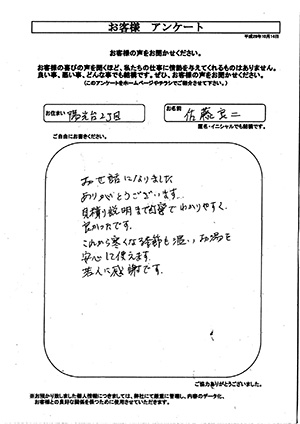 お客様 アンケート
平成29年10月14日
お客様の声をお聞かせください。
お客様の喜びの声を聞くほど、私たちの仕事に情熱を与えてくれるものはありません。
良い事、悪い事、どんな事でも結構です。ぜひ、お客様の声をお聞かせください。
(このアンケートをホームページやチラシでご紹介させて下さい。)
お住まい 陽光台2丁目
お名前 佐藤
匿名・イニシャルでも結構です。
ご自由にお書きください。
お世話になりました
ありがとうございます。
見積り説明まで丁寧でわかりやすく、
良かったです。
これから寒くなる季節も温い お湯を
安心して使えます。
に感謝です。
ご協力ありがとうございました。
※お預かり致しました個人情報につきましては、弊社にて厳重に管理し、内容のデータ化、
お客様との良好な関係を保つために使用させていただきます。